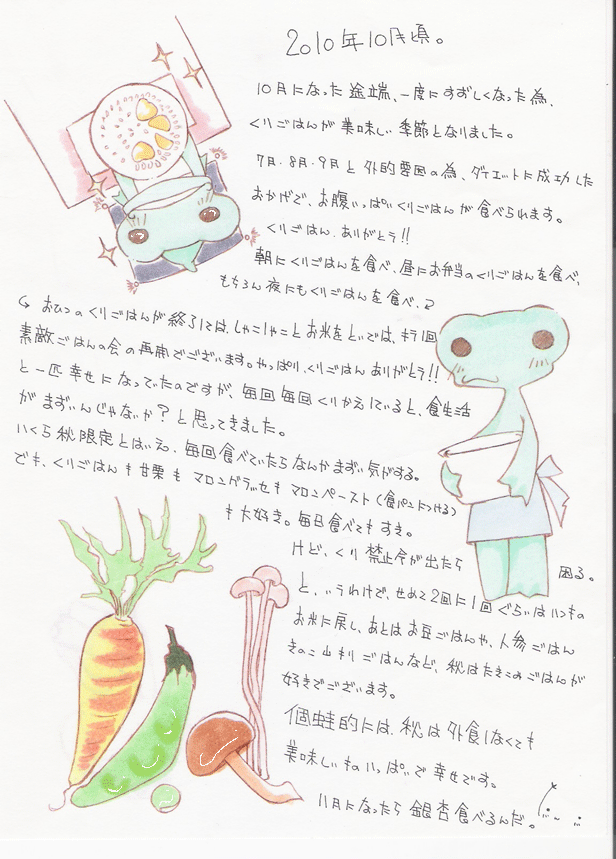 2010年10月頃。
10月になった途端、一度にすずしくなった為、
くりごはんが美味しい季節となりました。
7月・8月・9月と外的要因の為、ダイエットに成功した
おかげで、お腹いっぱいくりごはんが食べられます。
くりごはん、ありがとう!!
朝にくりごはんを食べ、昼にお弁当のくりごはんを食べ、
もちろん夜にもくりごはんを食べ、
おひつのくりごはんが終了しては、しゃこしゃことお米をといでは、キラ1回
素敵ごはんの会の再開でございます。やっぱり、くりごはんありがとう!!
と一匹幸せになっていたのですが、毎回毎回くりかえしていると、食生活
がまずいんじゃないか?と思ってきました。
いくら秋限定とはいえ、毎回食べていたらなんかまずい気がする。
でも、くりごはんも甘栗もマロングラッセもマロンペースト(食パンにつける)
も大好き。毎日食べてもすき。
けど、くり禁止令が出たら
困る。
と、いうわけで、せめて2回に1回ぐらいはいつもの
お米に戻し、あとはお豆ごはんや、人参ごはん
きのこ山もりごはんなど、秋はたきこみごはんが
好きでございます。
個蛙的には、秋は外食しなくても
美味しいものいっぱいで幸せです。
11月になったら銀杏食べるんだ。